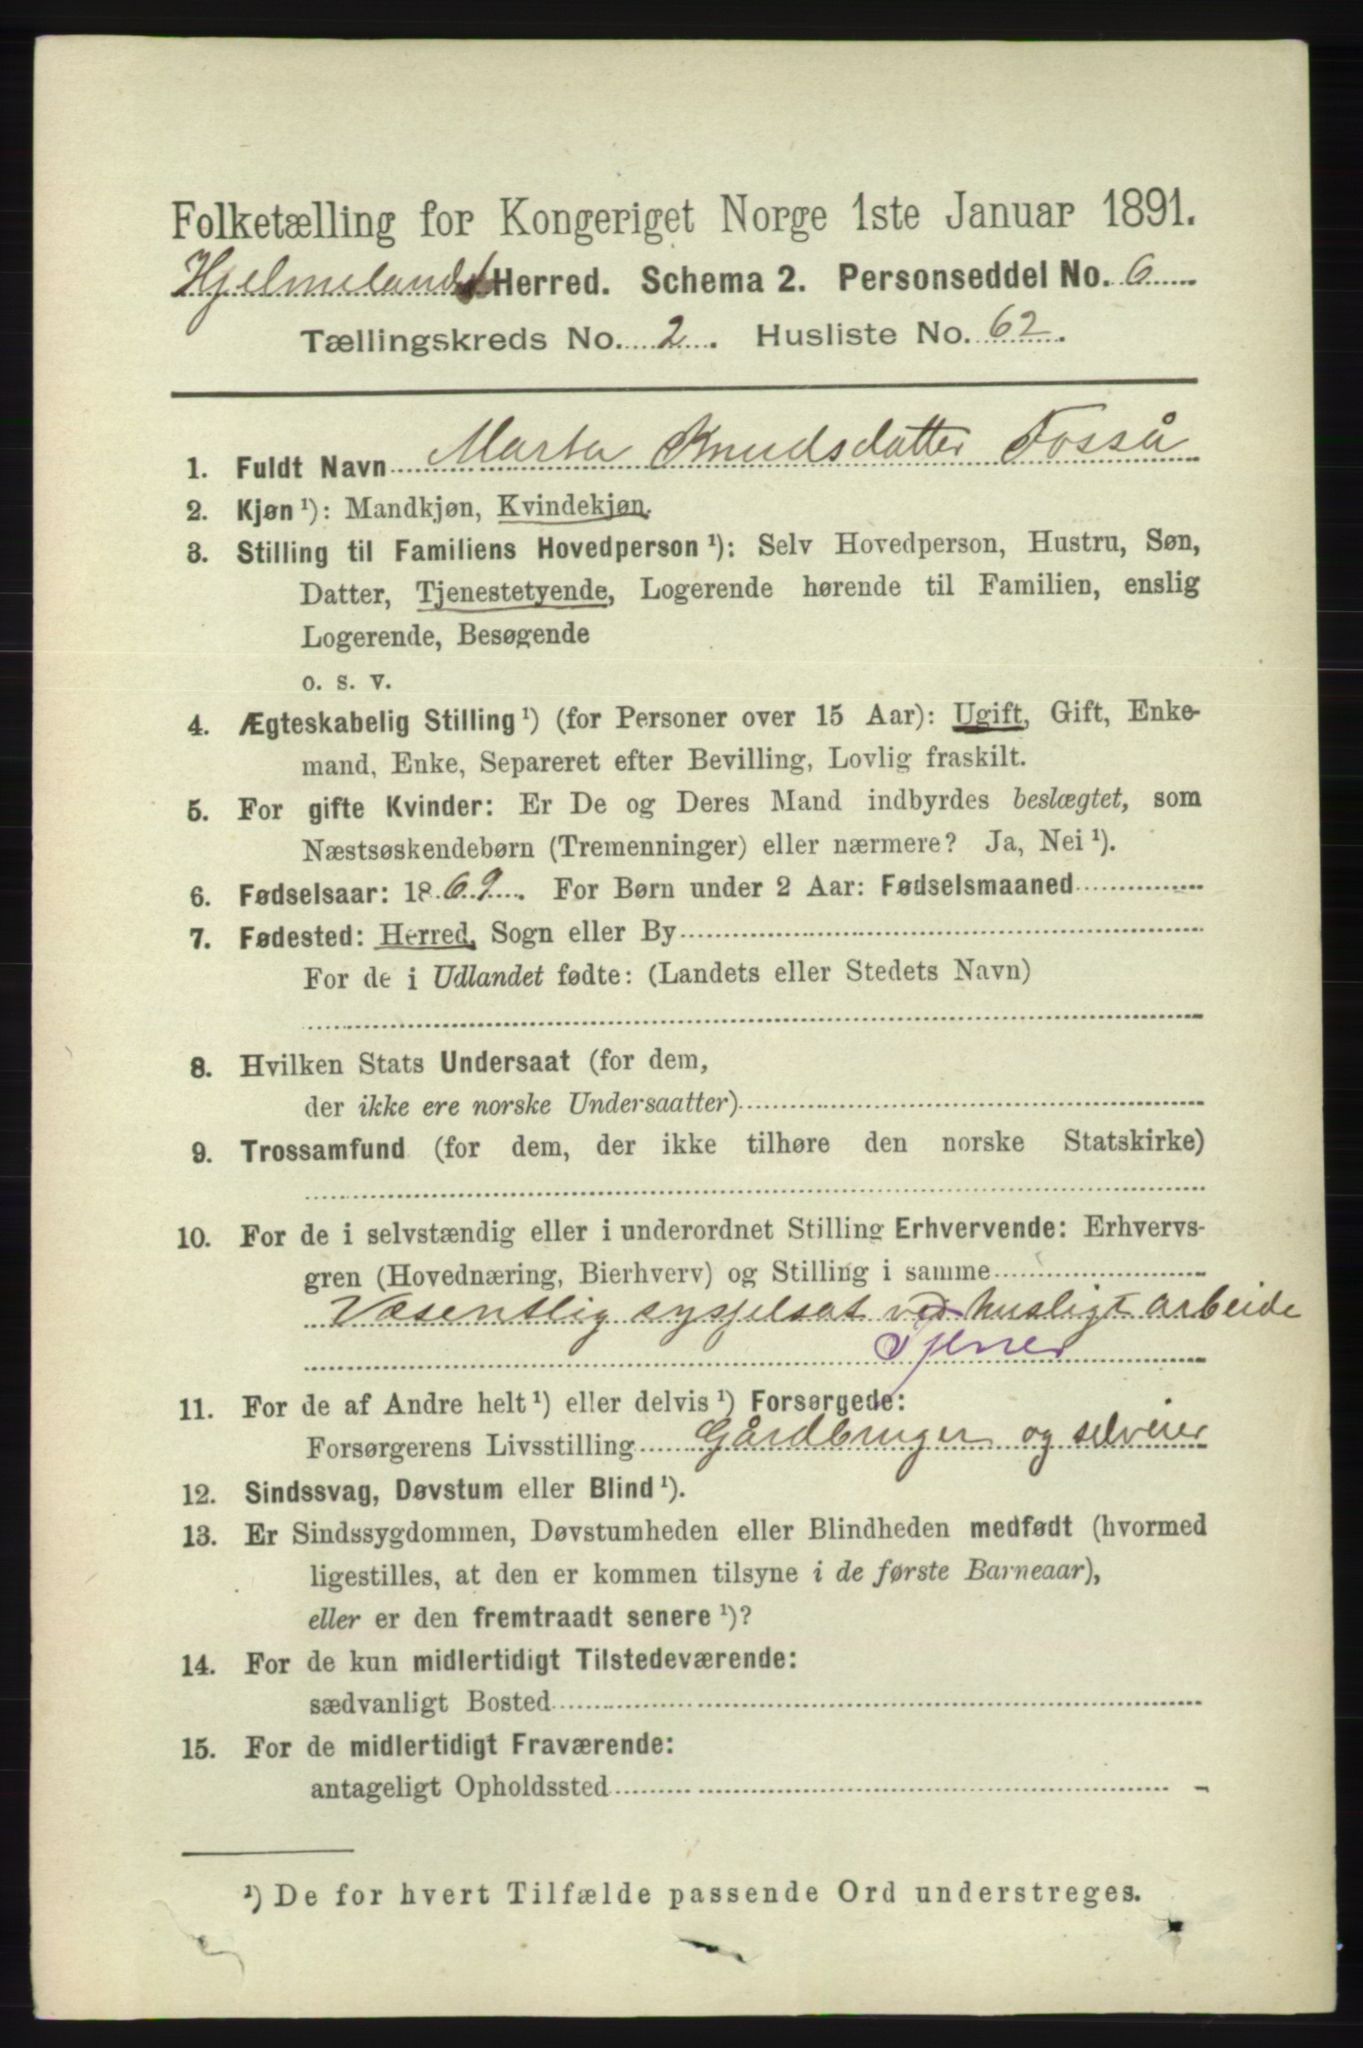 Folketælling for Kongeriget Norge 1ste Januar 1891.
Hjelmeland Herred. Schema 2. Personseddel No. 6
Tællingskreds No. 2. Husliste No. 62.
1. Fuldt Navn Marta Knudsdatter Fosså
2. Kjøn ¹): Mandkjøn, Kvindekjøn.
3. Stilling til Familiens Hovedperson ¹): Selv Hovedperson, Hustru, Søn,
Datter, Tjenestetyende, Logerende hørende til Familien, enslig
Logerende, Besøgende
o. s. v.
4. Ægteskabelig Stilling ¹) (for Personer over 15 Aar): Ugift, Gift, Enke-
mand, Enke, Separeret efter Bevilling, Lovlig fraskilt.
5. For gifte Kvinder: Er De og Deres Mand indbyrdes beslægtet, som
Næstsøskendebørn (Tremenninger) eller nærmere? Ja, Nei ¹).
6. Fødselsaar: 1869. For Børn under 2 Aar: Fødselsmaaned
7. Fødested: Herred, Sogn eller By
For de i Udlandet fødte: (Landets eller Stedets Navn)
8. Hvilken Stats Undersaat (for dem,
der ikke ere norske Undersaatter)
9. Trossamfund (for dem, der ikke tilhøre den norske Statskirke)
10. For de i selvstændig eller i underordnet Stilling Erhvervende: Erhvervs-
gren (Hovednæring, Bierhverv) og Stilling i samme
Væsentlig sysjelsat ved husligt arbeide
Tjener
11. For de af Andre helt ¹) eller delvis ¹) Forsørgede:
Forsørgerens Livsstilling Gårdbruger og selveier
12. Sindssvag, Døvstum eller Blind ¹).
13. Er Sindssygdommen, Døvstumheden eller Blindheden medfødt (hvormed
ligestilles, at den er kommen tilsyne i de første Barneaar),
eller er den fremtraadt senere ¹)?
14. For de kun midlertidigt Tilstedeværende:
sædvanligt Bosted
15. For de midlertidigt Fraværende:
antageligt Opholdssted
¹) De for hvert Tilfælde passende Ord understreges.